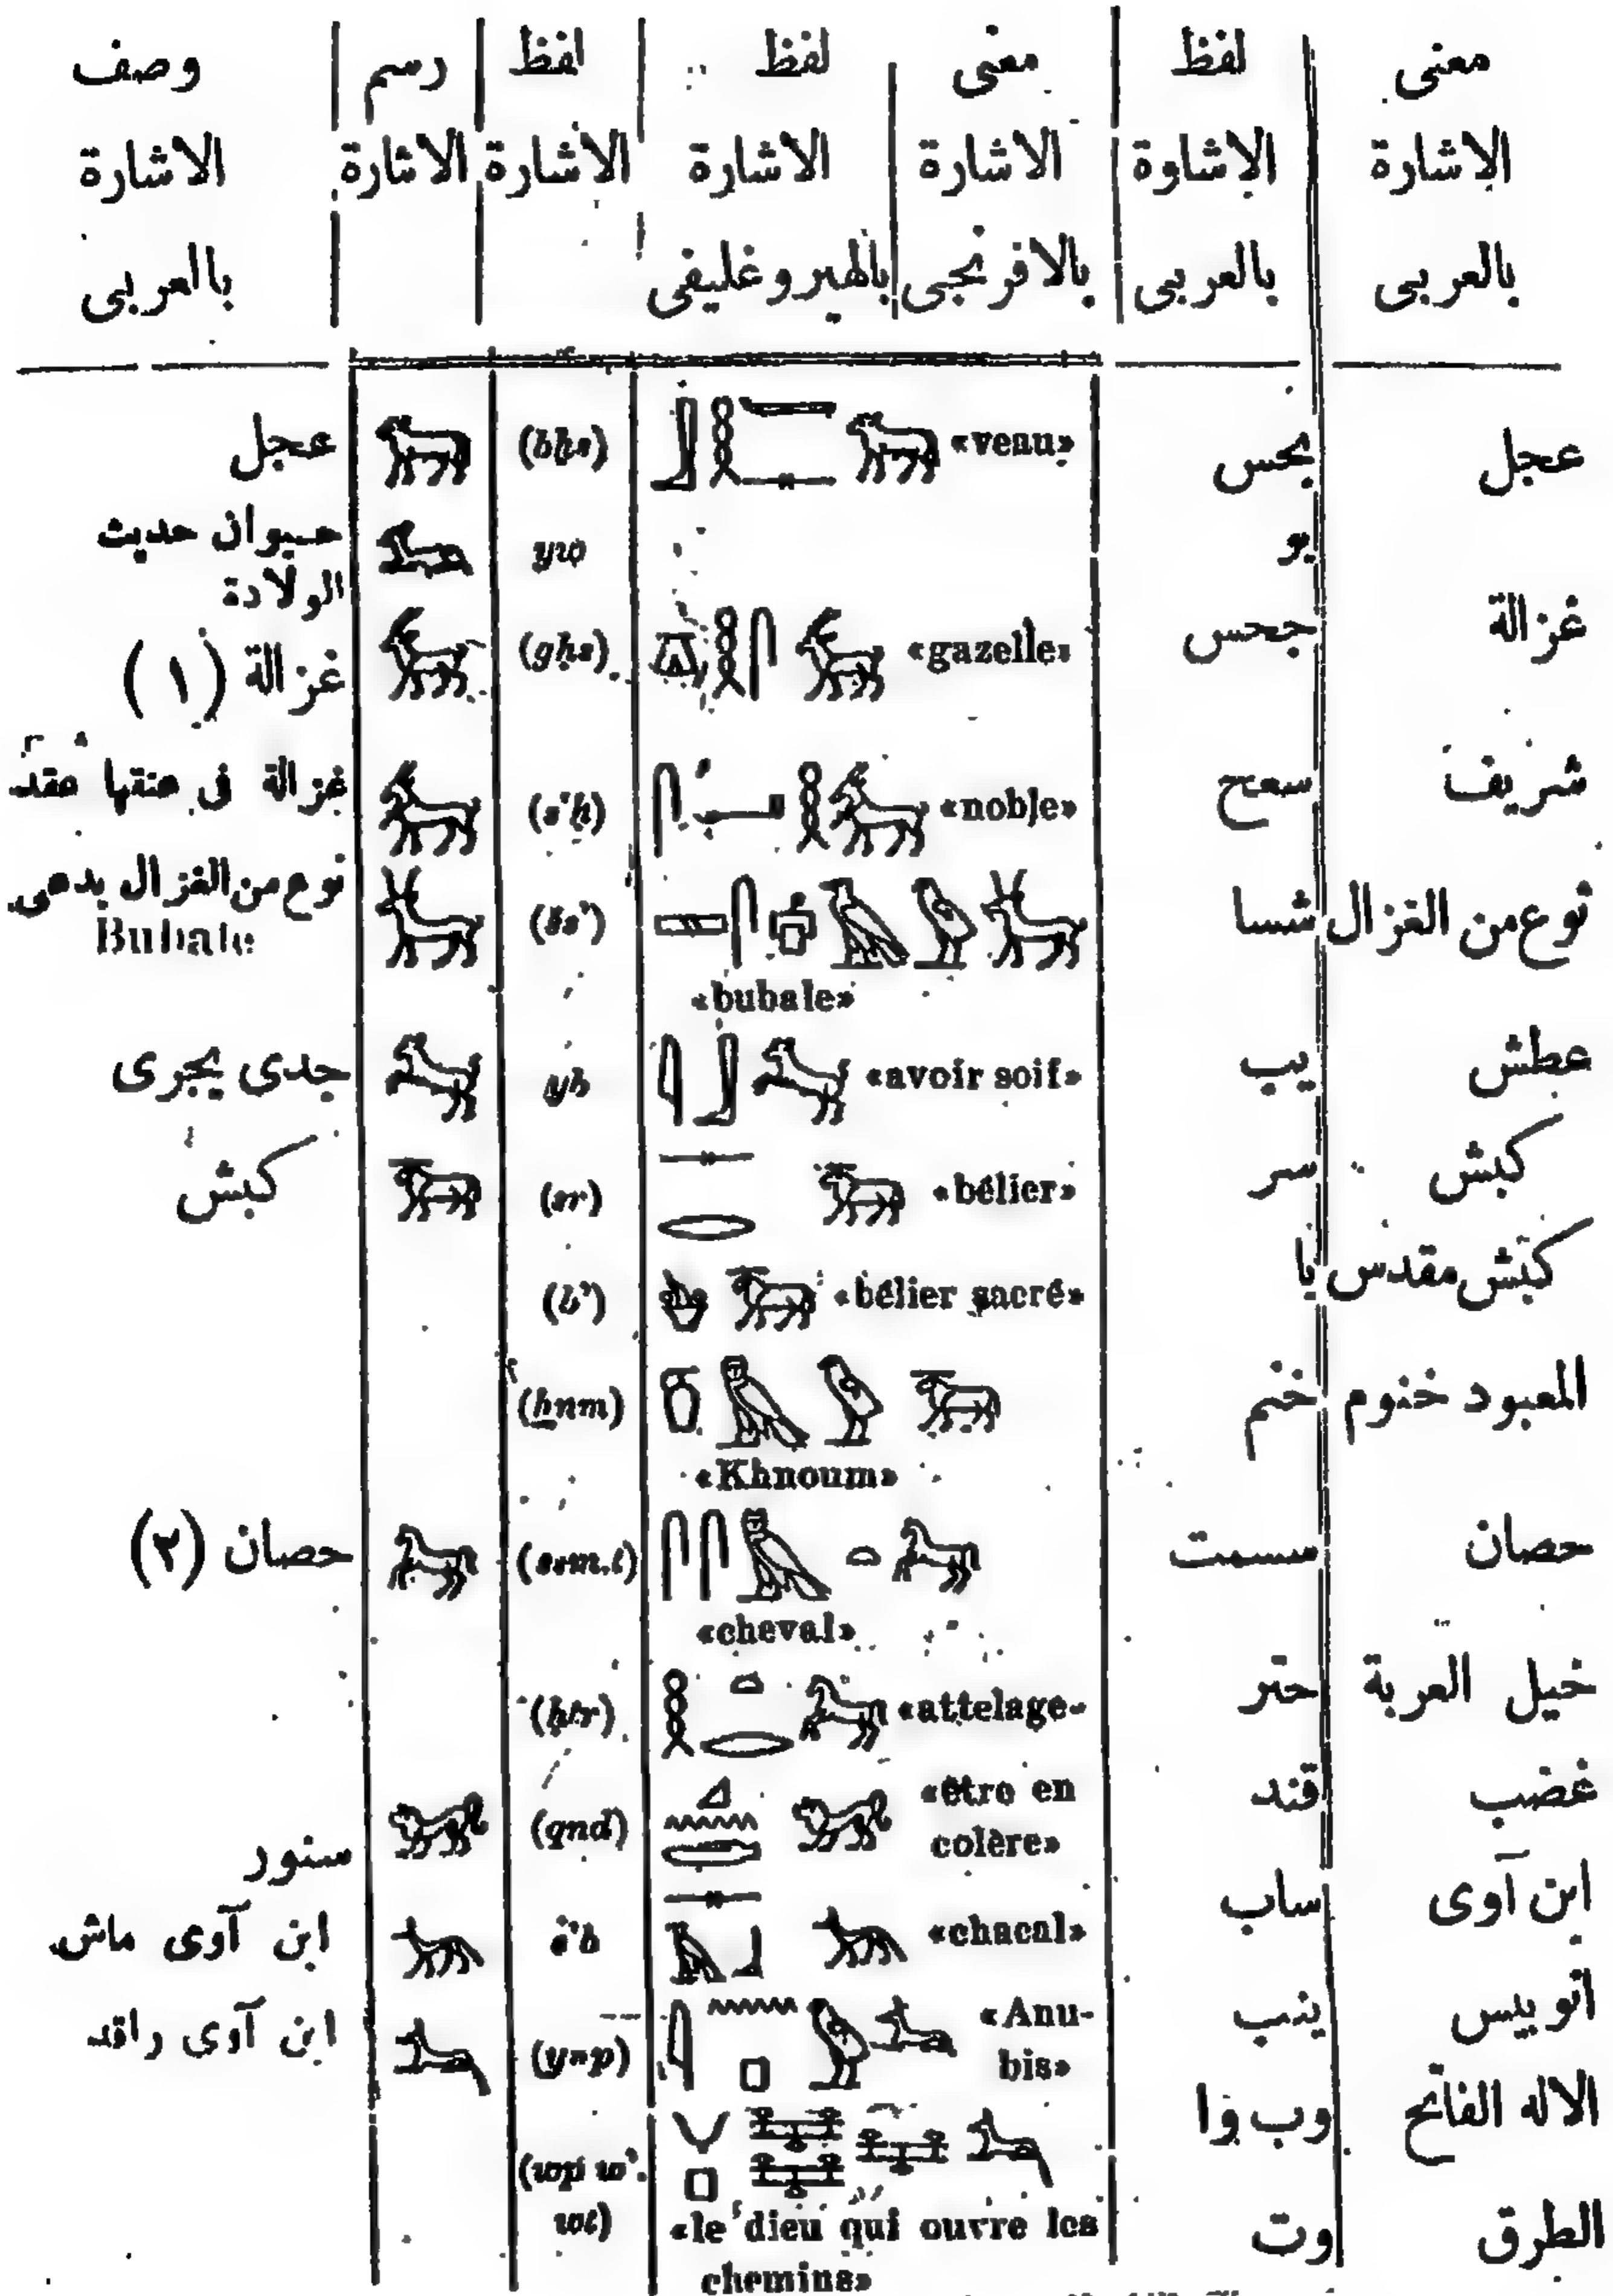 معنى | لفظ | معنى | لفظ | لفظ | رسم | وصف
الإشارة | الإشاوة | الاشارة | الاشارة | الاشارة | الاشارة | الاشارة
بالعربى | بالعربى | بالافرنجى | بالهيروغليفى | بالعربى
عجل | بحس | «venu» | (bḥs) | عجل
يو | yw | حيوان حديث
الولادة
غزالة | جحس | «gazelle» | (gḥs) | غزالة (١)
شريف | سعح | «noble» | (s'ḥ) | غزالة فى عنقها عقد
نوع من الغزال | شسا | «bubale» | (šs') | نوع من الغزال يدعى
Bubale
عطش | يب | «avoir soif» | yb | جدى يجرى
كبش | سر | «bélier» | (sr) | كبش
كبش مقدس | با | «bélier sacré» | (b')
المعبود خنوم | خنم | «Khnoum» | (ẖnm)
حصان | سسمت | «cheval» | (ssm.t) | حصان (٢)
خيل العربة | حتر | «attelage» | (ḥtr)
غضب | قند | «être en
colère» | (qnd) | سنور
ابن آوى | ساب | «chacal» | s'b | ابن آوى ماش
انوبيس | ينب | «Anu-
bis» | (ynp) | ابن آوى راقد
الاله الفاتح | وب وا | (wpi w'.
الطرق | وت | «le dieu qui ouvre les | wt)
chemins»